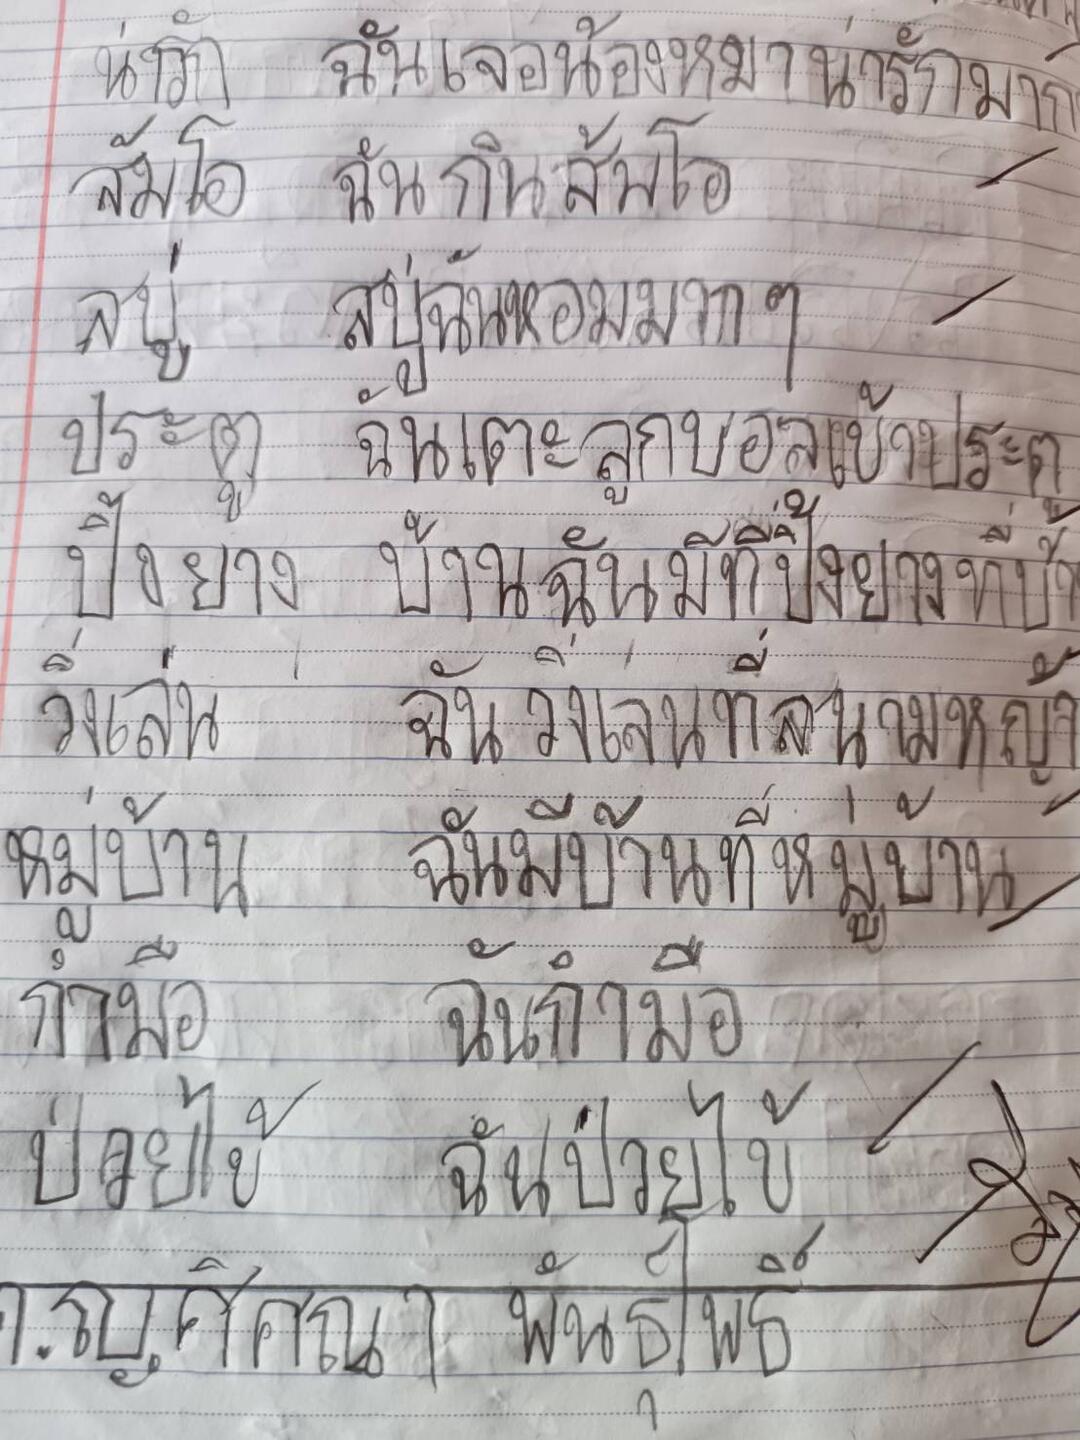 น่ารัก ฉันเจอน้องหมาน่ารักมาก
ส้มโอ ฉันกินส้มโอ
สบู่ สบู่ฉันหอมมากๆ
ประตู ฉันเตะลูกบอลเข้าประตู
ปิ้งยาง บ้านฉันมีที่ปิ้งยางที่บ้า
วิ่งเล่น ฉันวิ่งเล่นที่สนามหญ้า
หมู่บ้าน ฉันมีบ้านที่หมู่บ้าน
กำมือ ฉันกำมือ
ป่วยไข้ ฉันป่วยไข้
ด.ญ.ศิศณา พันธุ์โพธิ์